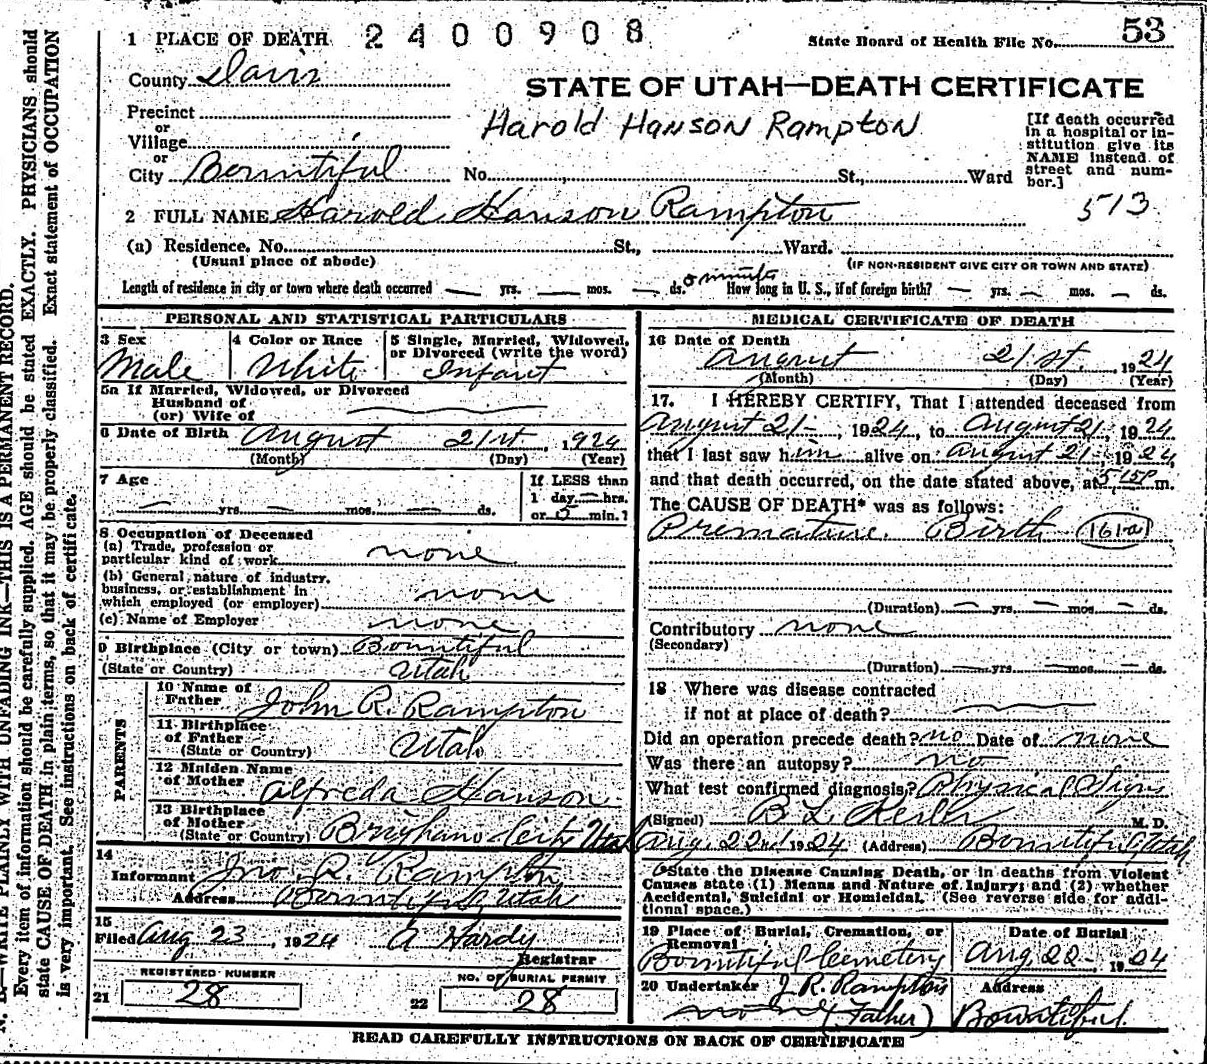 1 PLACE OF DEATH 2400908
State Board of Health File No. 53
County Davis
STATE OF UTAH—DEATH CERTIFICATE
Precinct
or
Village
or
City Bountiful No. St., Ward
Harold Hanson Rampton
[If death occurred
in a hospital or in-
stitution give its
NAME instead of
street and num-
ber.]
2 FULL NAME Harold Hanson Rampton
513
(a) Residence. No. St., Ward.
(Usual place of abode)
(IF NON-RESIDENT GIVE CITY OR TOWN AND STATE)
Length of residence in city or town where death occurred — yrs. — mos. — ds. 5 minutes How long in U. S., if of foreign birth? — yrs. — mos. — ds.
PERSONAL AND STATISTICAL PARTICULARS
3 Sex
Male
4 Color or Race
White
5 Single, Married, Widowed,
or Divorced (write the word)
Infant
5a If Married, Widowed, or Divorced
Husband of
(or) Wife of
6 Date of Birth August 21st, 1924
(Month) (Day) (Year)
7 Age
— yrs. — mos. — ds.
If LESS than
1 day — hrs.
or 5 min.?
8 Occupation of Deceased
(a) Trade, profession or
particular kind of work none
(b) General nature of industry,
business, or establishment in
which employed (or employer) none
(c) Name of Employer none
9 Birthplace (City or town) Bountiful
(State or Country) Utah
PARENTS
10 Name of
Father John R. Rampton
11 Birthplace
of Father
(State or Country) Utah
12 Maiden Name
of Mother Alfreda Hanson
13 Birthplace
of Mother
(State or Country) Brigham City Utah
14
Informant Jno. R. Rampton
Address Bountiful Utah
15
Filed Aug 23, 1924 A Hardy
Registrar
REGISTERED NUMBER
21 28
NO. OF BURIAL PERMIT
22 28
MEDICAL CERTIFICATE OF DEATH
16 Date of Death
August 21st, 1924
(Month) (Day) (Year)
17. I HEREBY CERTIFY, That I attended deceased from
August 21-, 1924, to August 21, 1924
that I last saw him alive on August 21, 1924,
and that death occurred, on the date stated above, at 5:15P m.
The CAUSE OF DEATH* was as follows:
Premature Birth (161-a)
(Duration) — yrs. — mos. — ds.
Contributory none
(Secondary)
(Duration) — yrs. — mos. — ds.
18 Where was disease contracted
if not at place of death?
Did an operation precede death? no Date of none
Was there an autopsy? no
What test confirmed diagnosis? Physical Signs
(Signed) B L M. D.
Aug. 22nd 1924 (Address) Bountiful, Utah
*State the Disease Causing Death, or in deaths from Violent
Causes state (1) Means and Nature of Injury; and (2) whether
Accidental, Suicidal or Homicidal. (See reverse side for addi-
tional space.)
19 Place of Burial, Cremation, or
Removal
Bountiful Cemetery
Date of Burial
Aug 22-, 1924
20 Undertaker J. R. Rampton
none (Father)
Address
Bountiful.
READ CAREFULLY INSTRUCTIONS ON BACK OF CERTIFICATE
N. B.—WRITE PLAINLY WITH UNFADING INK—THIS IS A PERMANENT RECORD.
Every item of information should be carefully supplied. AGE should be stated EXACTLY. PHYSICIANS should
state CAUSE OF DEATH in plain terms, so that it may be properly classified. Exact statement of OCCUPATION
is very important. See instructions on back of certificate.